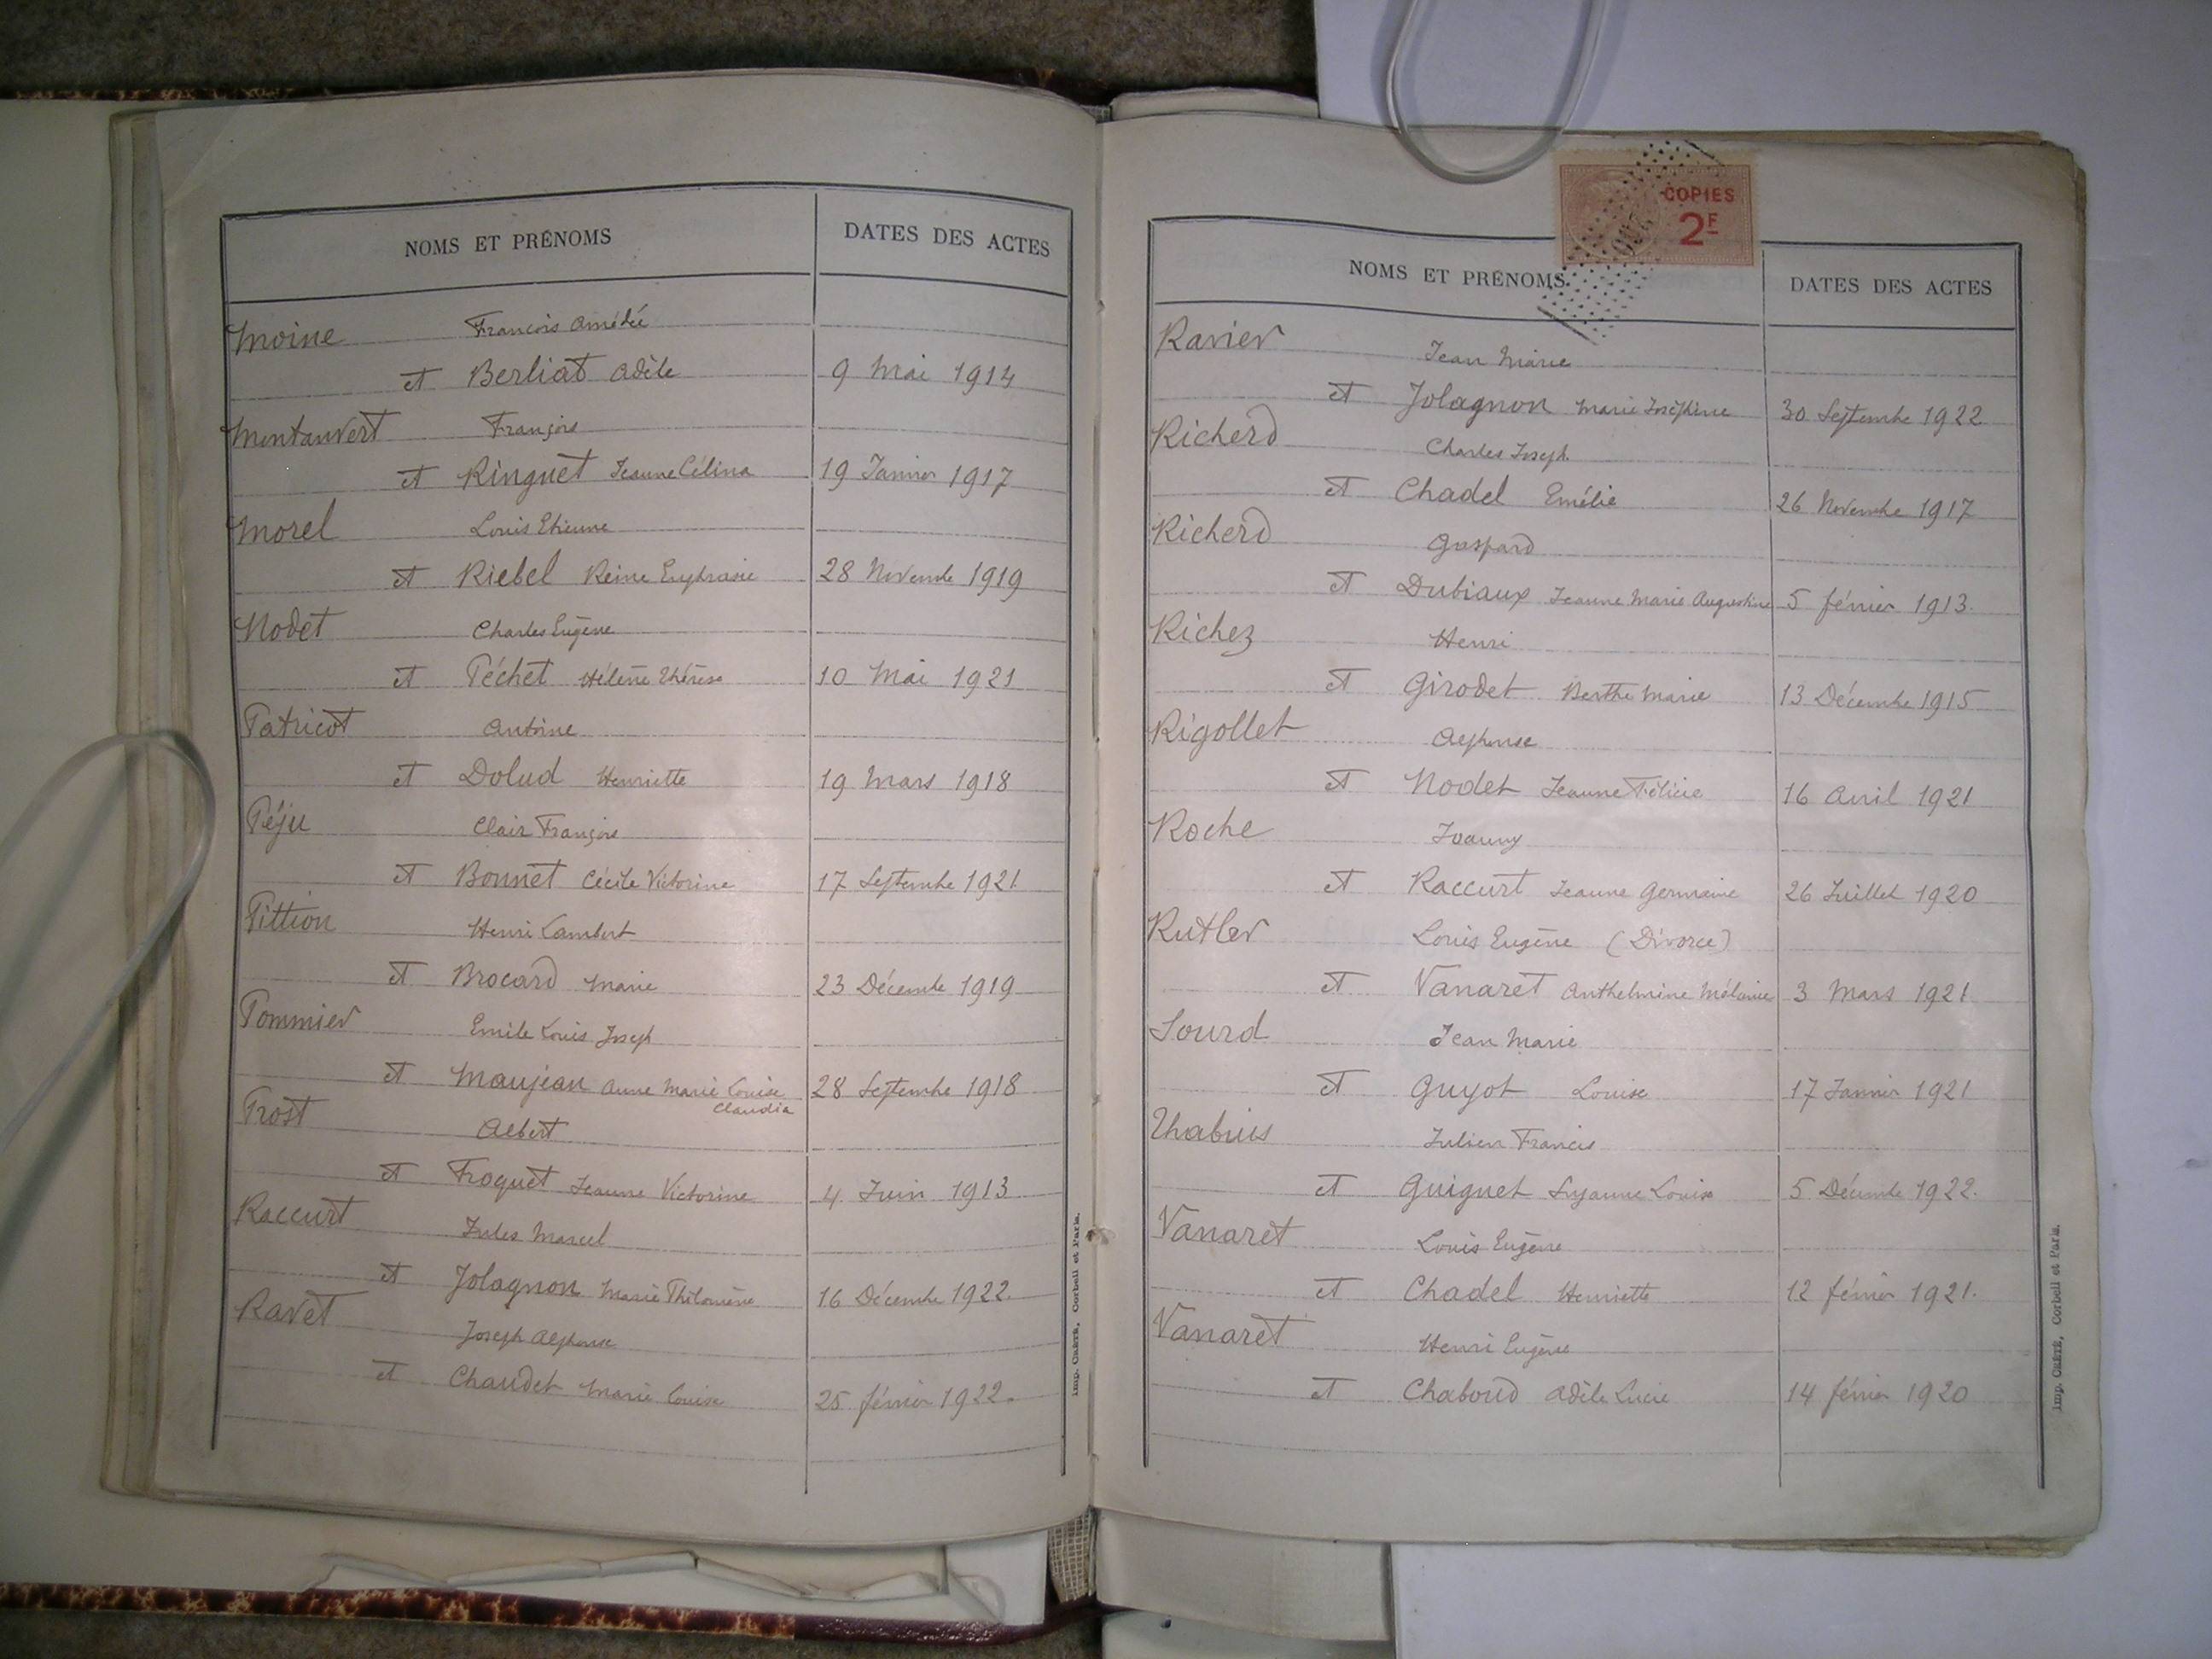 NOMS ET PRÉNOMS DATES DES ACTES
Moine François Amédée
et Berliat Adèle 9 Mai 1914
Montauvert François
et Ringuet Jeanne Célina 19 Janvier 1917
Morel Louis Etienne
et Riebel Reine Euphrasie 28 Novembre 1919
Nodet Charles Eugène
et Péchet Hélène Thérèse 10 Mai 1921
Patricot Antoine
et Dolud Henriette 19 Mars 1918
Péju Clair François
et Bonnet Cécile Victorine 17 Septembre 1921
Pittion Henri Lambert
et Brocard Marie 23 Décembre 1919
Pommier Emile Louis Joseph
et Maujean Anne Marie Louise 28 Septembre 1918
Claudia
Prost Albert
et Froquet Jeanne Victorine 4 Juin 1913
Raccurt Jules Marcel
et Jolagnon Marie Philomène 16 Décembre 1922.
Ravet Joseph Alphonse
et Chaudet Marie Louise 25 février 1922.
Imp. Crété, Corbeil et Paris.
COPIES
2F
NOMS ET PRÉNOMS DATES DES ACTES
Ravier Jean Marie
et Jolagnon Marie Joséphine 30 Septembre 1922
Richerd Charles Joseph
et Chadel Emélie 26 Novembre 1917
Richerd Gaspard
et Dubiaux Jeanne Marie Augustine 5 février 1913.
Richez Henri
et Girodet Berthe Marie 13 Décembre 1915
Rigollet Alphonse
et Nodet Jeanne Félicie 16 Avril 1921
Roche Joanny
et Raccurt Jeanne Germaine 26 Juillet 1920
Rutler Louis Eugène (Divorce)
et Vanaret Anthelmine Mélanie 3 Mars 1921
Sourd Jean Marie
et Guyot Louise 17 Janvier 1921
Thabuis Julien Francis
et Guignet Suzanne Louise 5 Décembre 1922.
Vanaret Louis Eugène
et Chadel Henriette 12 février 1921.
Vanaret Henri Eugène
et Chaboud Adèle Lucie 14 février 1920
Imp. Crété, Corbeil et Paris.